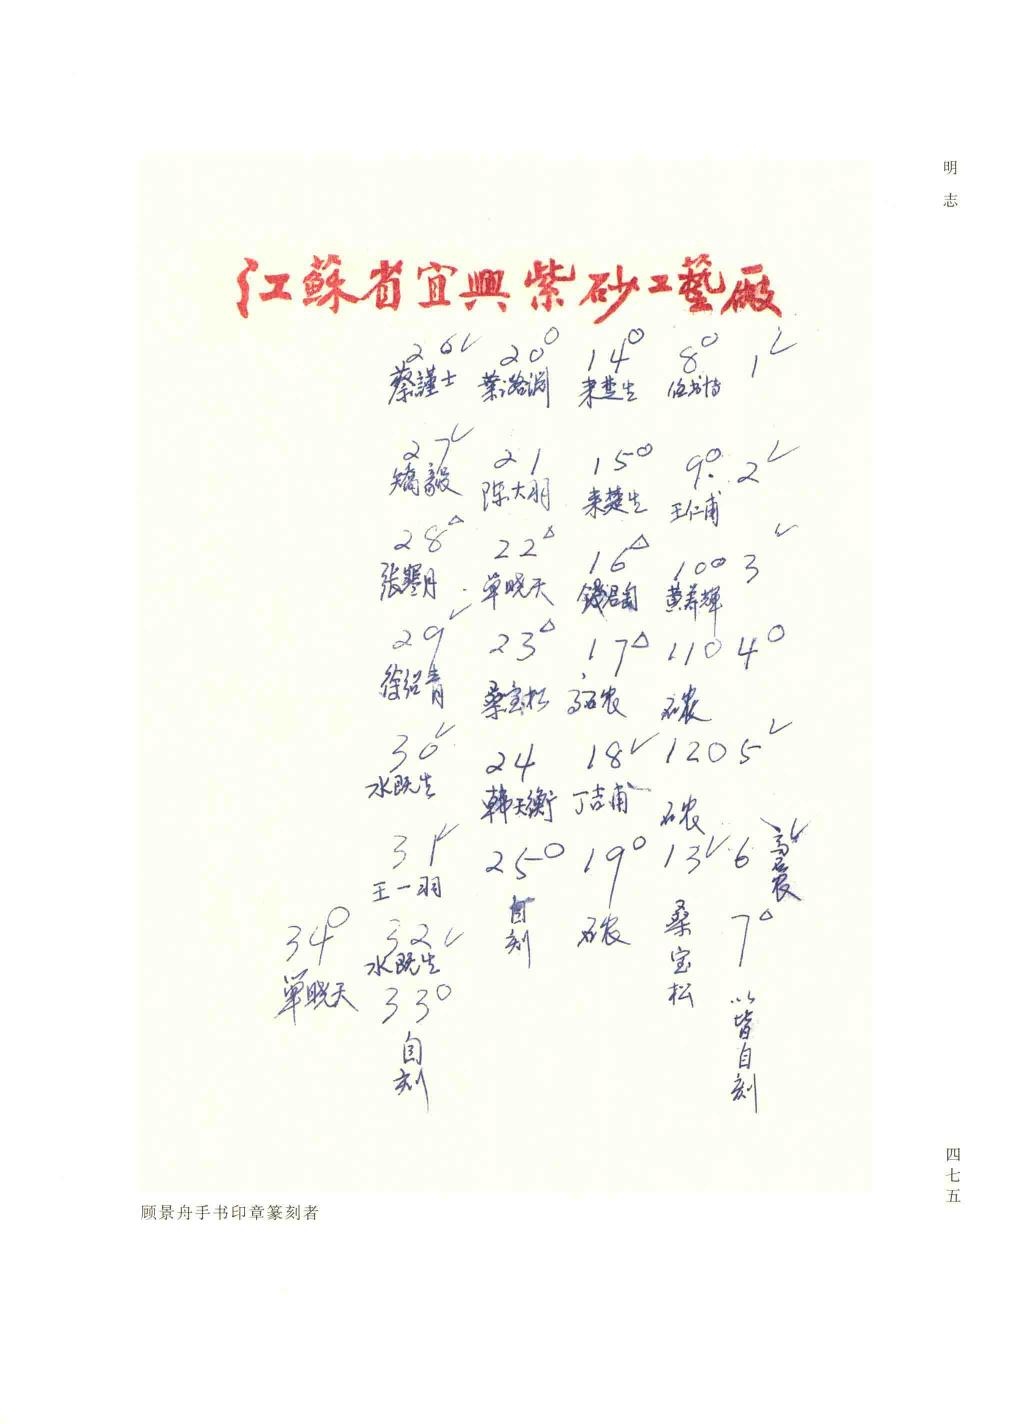 明志
江蘇省宜興紫砂工藝廠
1
2
3
4
5
6
高石农
7
以皆自刻
8
9
王仁甫
10
黄寿輝
11
石农
12
石农
13
桑宝松
14
来楚生
15
来楚生
16
錢君匋
17
高石农
18
丁吉甫
19
石农
20
葉潞渊
21
陈大羽
22
單晓天
23
桑宝松
24
韩天衡
25
自刻
26
蔡謹士
27
矯毅
28
張寒月
29
徐绍青
30
水既生
31
王一羽
32
水既生
33
自刻
34
單晓天
顾景舟手书印章篆刻者
四七五